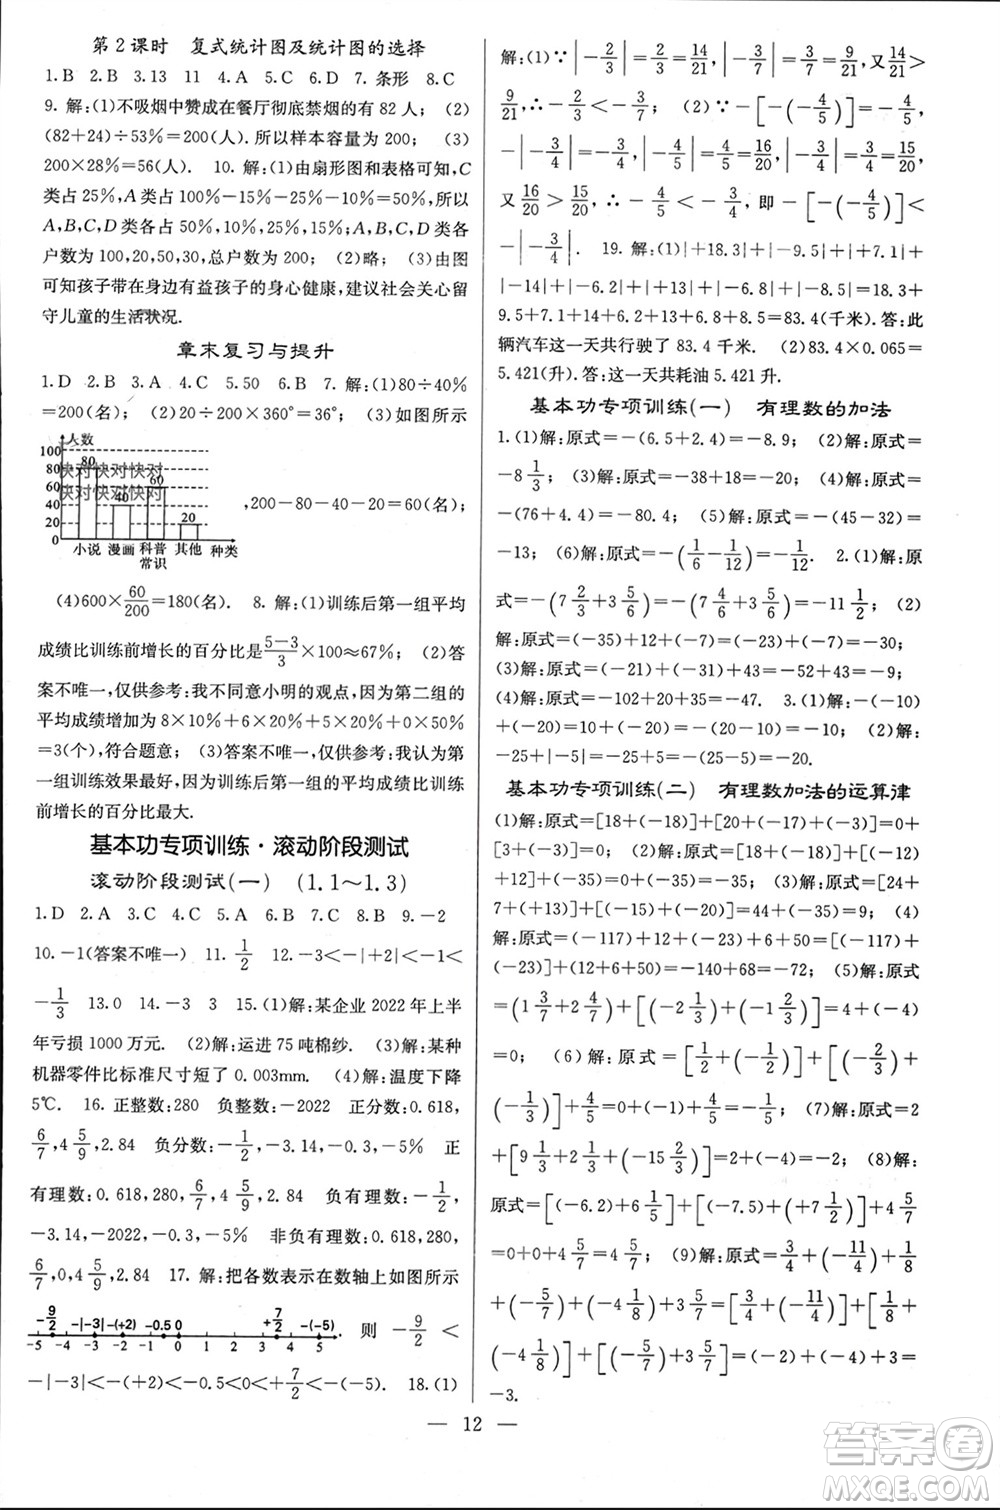 第2课时 复式统计图及统计图的选择
1.B 2.B 3.13 11 4.A 5.C 6.D 7.条形 8.C
9.解:(1)不吸烟中赞成在餐厅彻底禁烟的有82人; (2)
(82+24)÷53%=200(人).所以样本容量为200; (3)
200×28%=56(人). 10.解:(1)由扇形图和表格可知,C
类占25%,A类占100%-15%-25%-10%=50%,所以
A,B,C,D类各占50%,25%,15%,10%;A,B,C,D类各
户数为100,20,50,30,总户数为200; (2)略; (3)由图
可知孩子带在身边有益孩子的身心健康,建议社会关心留
守儿童的生活状况.
章末复习与提升
1.D 2.B 3.A 4.C 5.50 6.B 7.解:(1)80÷40%
=200(名); (2)20÷200×360°=36°; (3)如图所示
人数
100
80
60
40
20
0
80
40
60
20
小说 漫画 科普常识 其他 种类
快对快对快对
快对快对快对
,200-80-40-20=60(名);
(4)600×60/200=180(名). 8.解:(1)训练后第一组平均
成绩比训练前增长的百分比是(5-3)/3×100≈67%; (2)答
案不唯一,仅供参考:我不同意小明的观点,因为第二组的
平均成绩增加为8×10%+6×20%+5×20%+0×50%
=3(个),符合题意; (3)答案不唯一,仅供参考:我认为第
一组训练效果最好,因为训练后第一组的平均成绩比训练
前增长的百分比最大.
基本功专项训练·滚动阶段测试
滚动阶段测试(一) (1.1~1.3)
1.D 2.A 3.C 4.C 5.A 6.B 7.B 8.B 9.-2
10.-1(答案不唯一) 11.1/2 12.-3<-|+2|<-1<
-1/3 13.0 14.-3 3 15.(1)解:某企业2022年上半
年亏损1000万元. (2)解:运进75吨棉纱. (3)解:某种
机器零件比标准尺寸短了0.003mm. (4)解:温度下降
5℃. 16.正整数:280 负整数:-2022 正分数:0.618,
6/7,4 5/9,2.84 负分数:-1/2,-3.14,-0.3,-5% 正
有理数:0.618,280,6/7,4 5/9,2.84 负有理数:-1/2,
-3.14,-2022,-0.3,-5% 非负有理数:0.618,280,
6/7,0,4 5/9,2.84 17.解:把各数表示在数轴上如图所示
-9/2 -|-3| -(+2) -0.5 0 +7/2 -(-5)
-5 -4 -3 -2 -1 0 1 2 3 4 5
. 则 -9/2 <
-|-3|<-(+2)<-0.5<0<+7/2<-(-5). 18.(1)
解:(1)∵|-2/3|=2/3=14/21,|-3/7|=3/7=9/21,又14/21>
9/21,∴-2/3<-3/7. (2)∵-[-(-4/5)]=-4/5,
-|-3/4|=-3/4,|-4/5|=4/5=16/20,|-3/4|=3/4=15/20,
又16/20>15/20,∴-4/5<-3/4,即-[-(-4/5)]<
-|-3/4|. 19.解:(1)|+18.3|+|-9.5|+|+7.1|+
|-14|+|-6.2|+|+13|+|-6.8|+|-8.5|=18.3+
9.5+7.1+14+6.2+13+6.8+8.5=83.4(千米).答:此
辆汽车这一天共行驶了83.4千米. (2)83.4×0.065=
5.421(升).答:这一天共耗油5.421升.
基本功专项训练(一) 有理数的加法
1.(1)解:原式=-(6.5+2.4)=-8.9; (2)解:原式=
-8 1/3; (3)解:原式=-(38-18)=-20; (4)解:原式=
-(76+4.4)=-80.4; (5)解:原式=-(45-32)=
-13; (6)解:原式=-(1/6-1/12)=-1/12. 2.(1)解:原
式=-(7 2/3+3 5/6)=-(7 4/6+3 5/6)=-11 1/2; (2)
解:原式=(-35)+12+(-7)=(-23)+(-7)=-30;
(3)解:原式=(-9)+(-1)+52=-10+52=42;
(4)解:原式=-102+20+35=-47. 3.(1)-(-10)
+(-20)=10+(-20)=-(20-10)=-10. (2)
-25+|-5|=-25+5=-(25-5)=-20.
基本功专项训练(二) 有理数加法的运算律
(1)解:原式=[18+(-18)]+[20+(-17)+(-3)]=0+
[3+(-3)]=0; (2)解:原式=[18+(-18)]+[(-12)
+12]+(-35)=0+0+(-35)=-35; (3)解:原式=[24+
7+(+13)]+[(-15)+(-20)]=44+(-35)=9; (4)
解:原式=(-117)+12+(-23)+6+50=[(-117)+
(-23)]+(12+6+50)=-140+68=-72; (5)解:原式
=(1 3/7+2 4/7)+[(-2 1/3)+(-1 2/3)]=4+(-4)
=0; (6)解:原式=[1/2+(-1/2)]+[(-2/3)+
(-1/3)]+4/5=0+(-1)+4/5=-1/5; (7)解:原式=2
+[9 1/3+6 2/3+(-15 2/3)]=2+(-2)=0; (8)解:
原式=[(-6.2)+6 1/5]+[(-7.5)+(+7 1/2)]+4 5/7
=0+0+4 5/7=4 5/7; (9)解:原式=3/4+(-11/4)+
+(-5/7)+(-4 1/8)+(-1/8)+5/7=[3/4+(-11/4)]+
+[(-4 1/8)+(-1/8)]+[(-5/7)+5/7]=
-3.
— 12 —
答案圈
MXQE.COM